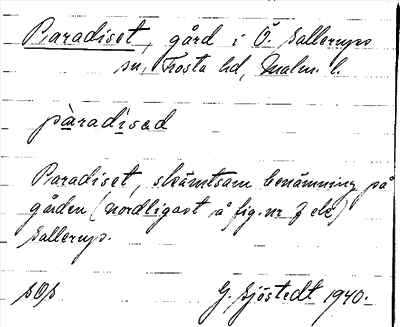 Paradiset, gård i Ö. Sallerups
sn, Frosta hd, Malm. l.
pàradisad
Paradiset, skämtsam benämning på
gården (nordligast å fig. nr 7 ek)
Sallerup.
SOS G. Sjöstedt 1940.